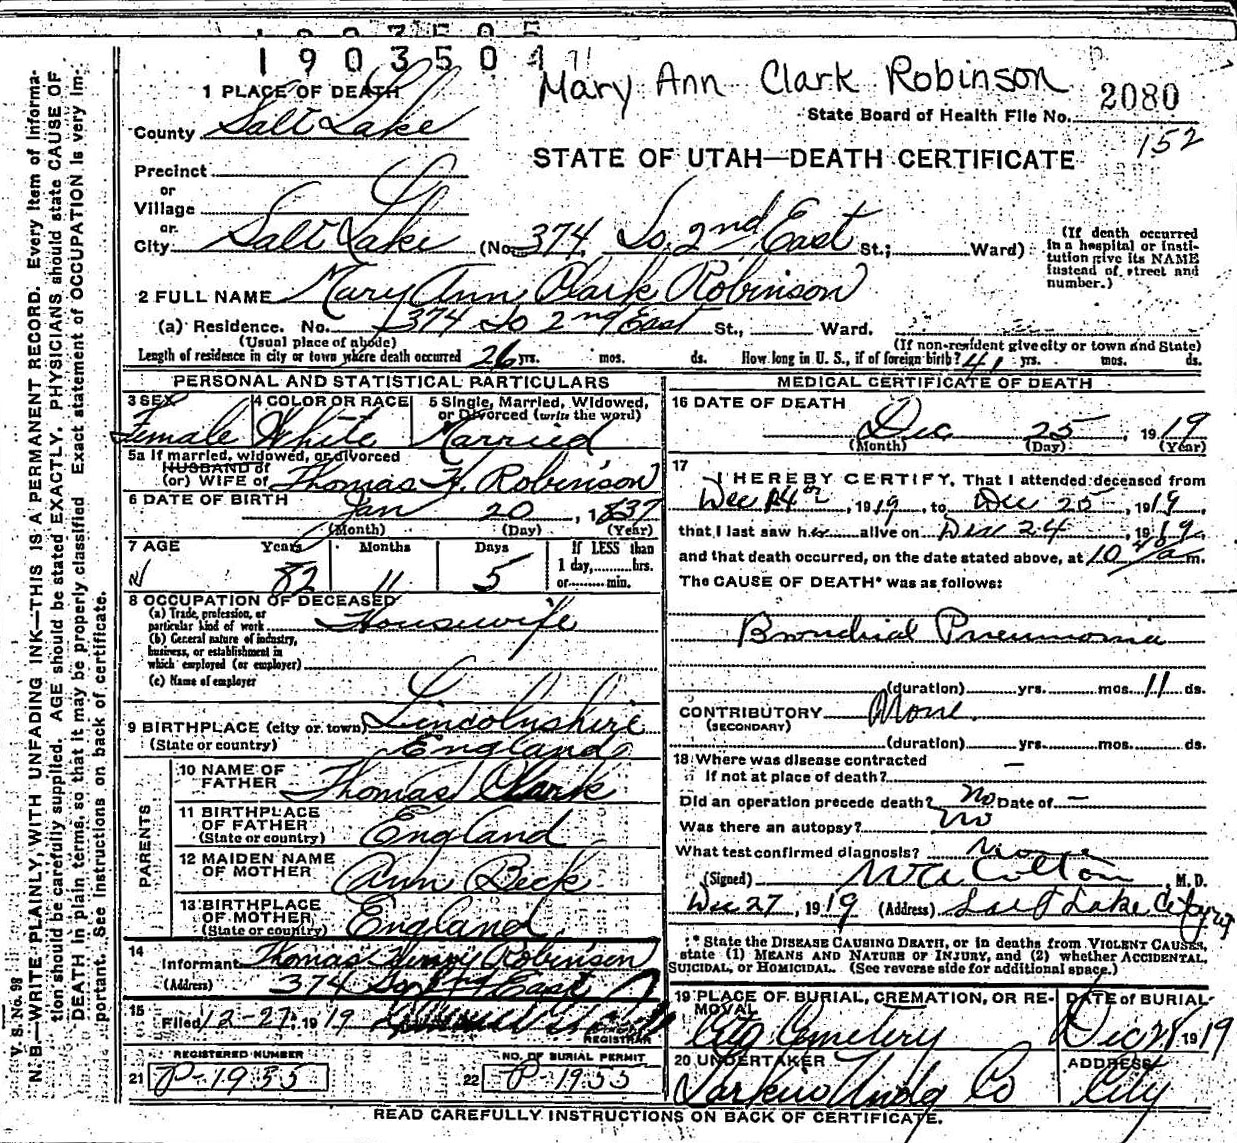 1903501
Mary Ann Clark Robinson
2080
State Board of Health File No.
152
1 PLACE OF DEATH
County Salt Lake
STATE OF UTAH—DEATH CERTIFICATE
Precinct
or
Village
or
City Salt Lake (No. 374 So. 2nd East St.; Ward)
(If death occurred in a hospital or institution give its NAME instead of street and number.)
2 FULL NAME Mary Ann Clark Robinson
(a) Residence. No. 374 So 2nd East St., Ward.
(Usual place of abode) (If non-resident give city or town and State)
Length of residence in city or town where death occurred 26 yrs. mos. ds. How long in U. S., if of foreign birth? 41 yrs. mos. ds.
PERSONAL AND STATISTICAL PARTICULARS
3 SEX Female
4 COLOR OR RACE White
5 Single, Married, Widowed, or Divorced (write the word) Married
5a If married, widowed, or divorced
HUSBAND of
(or) WIFE of Thomas H. Robinson
6 DATE OF BIRTH Jan 20, 1837
(Month) (Day) (Year)
7 AGE Years 82 Months 11 Days 5
If LESS than 1 day, hrs. or min.
8 OCCUPATION OF DECEASED
(a) Trade, profession, or particular kind of work Housewife
(b) General nature of industry, business, or establishment in which employed (or employer)
(c) Name of employer
9 BIRTHPLACE (city or town) Lincolnshire
(State or country) England
PARENTS
10 NAME OF FATHER Thomas Clark
11 BIRTHPLACE OF FATHER (State or country) England
12 MAIDEN NAME OF MOTHER Ann Beck
13 BIRTHPLACE OF MOTHER (State or country) England
14 Informant Thomas Henry Robinson
(Address) 374 So East
15 Filed 12-27, 1919
REGISTRAR
21 REGISTERED NUMBER P-1955
22 NO. OF BURIAL PERMIT P-1955
MEDICAL CERTIFICATE OF DEATH
16 DATE OF DEATH
Dec 25, 1919
(Month) (Day) (Year)
17 I HEREBY CERTIFY, That I attended deceased from
Dec 14th, 1919, to Dec 25, 1919,
that I last saw her alive on Dec 24, 1919,
and that death occurred, on the date stated above, at 10 am.
The CAUSE OF DEATH* was as follows:
Bronchial Pneumonia
(duration) yrs. mos. 11 ds.
CONTRIBUTORY None
(SECONDARY)
(duration) yrs. mos. ds.
18 Where was disease contracted
if not at place of death? —
Did an operation precede death? No Date of —
Was there an autopsy? No
What test confirmed diagnosis? None
(Signed) M.D.
Dec 27, 1919 (Address) Salt Lake City
* State the DISEASE CAUSING DEATH, or in deaths from VIOLENT CAUSES, state (1) MEANS AND NATURE OF INJURY, and (2) whether ACCIDENTAL, SUICIDAL, or HOMICIDAL. (See reverse side for additional space.)
19 PLACE OF BURIAL, CREMATION, OR REMOVAL City Cemetery
DATE of BURIAL Dec 28, 1919
20 UNDERTAKER Larkin Undg Co
ADDRESS City
READ CAREFULLY INSTRUCTIONS ON BACK OF CERTIFICATE.
V. S. No. 98
N. B.—WRITE PLAINLY, WITH UNFADING INK—THIS IS A PERMANENT RECORD. Every item of information should be carefully supplied. AGE should be stated EXACTLY. PHYSICIANS should state CAUSE OF DEATH in plain terms, so that it may be properly classified. Exact statement of OCCUPATION is very important. See instructions on back of certificate.